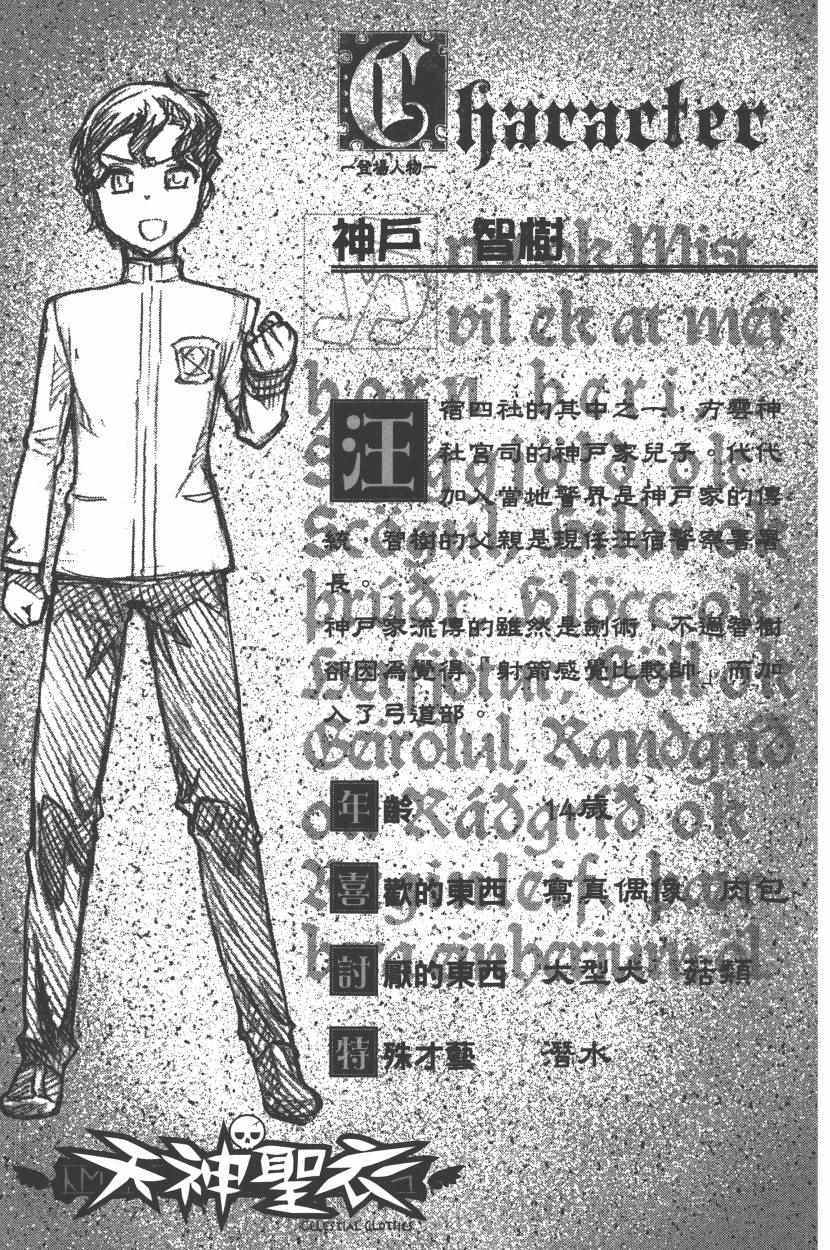 Character
―登場人物―
神戶 智樹
汪宿四社的其中之一,方雲神
社宮司的神戶家兒子。代代
加入當地警界是神戶家的傳
統,智樹的父親是現任汪宿警察署署
長。
神戶家流傳的雖然是劍術,不過智樹
卻因為覺得『射箭感覺比較帥』而加
入了弓道部。
年齡 14歲
喜歡的東西 寫真偶像 肉包
討厭的東西 大型犬 菇類
特殊才藝 潛水
Mist
vil ek at mér
horn beri
ok
Skögul, Hildr ok
Þrúðr, Hlöcc ok
Herfjötur, Göll ok
Geirölul, Randgríð
ok Ráðgríð ok
天神聖衣
CELESTIAL CLOTHES